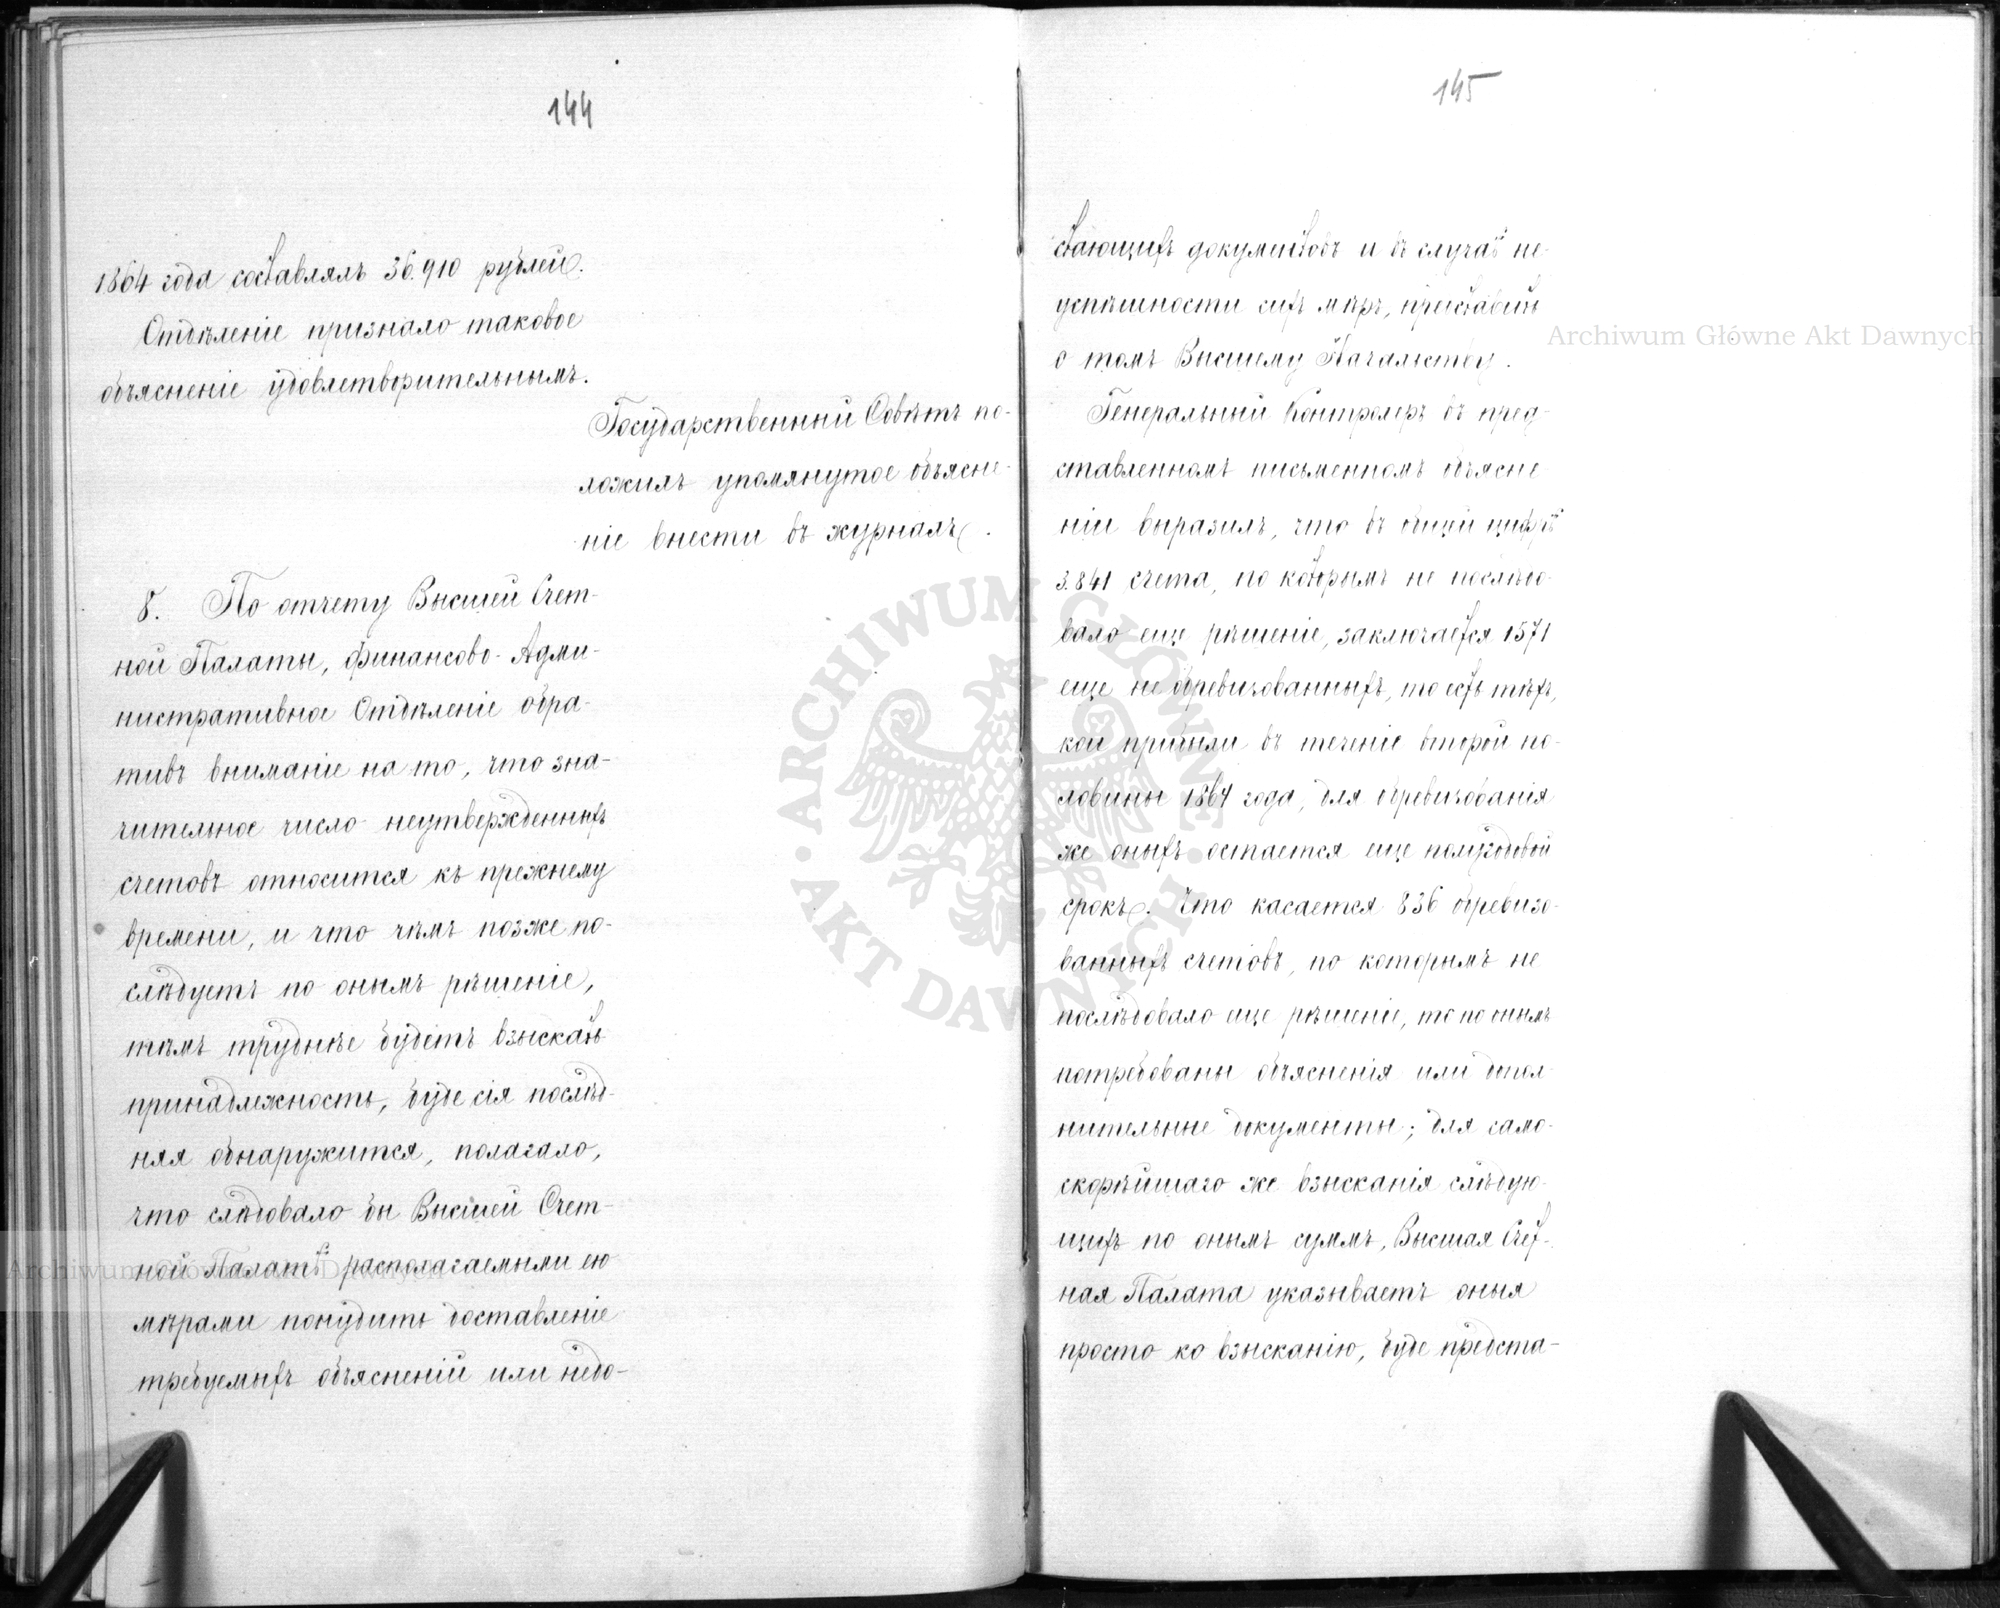 144
1864 года составлялъ 36.910 рублей.
Отдѣленіе признало таковое
объясненіе удовлетворительнымъ.
Государственный Совѣтъ по-
ложилъ упомянутое объясне-
ніе внести въ журналъ.
8. По отчету Высшей Счет-
ной Палаты, Финансово-Адми-
нистративное Отдѣленіе обра-
тивъ вниманіе на то, что зна-
чительное число неутвержденныхъ
счетовъ относится къ прежнему
времени, и что чѣмъ позже по-
слѣдуетъ по онымъ рѣшеніе,
тѣмъ труднѣе будетъ взыскать
принадлежность, буде сія послѣд-
няя обнаружится, полагало,
что слѣдовало бы Высшей Счет-
ной Палатѣ располагаемыми ею
мѣрами понудить доставленіе
требуемыхъ объясненій или недо-
145
стающихъ документовъ и въ случаѣ не-
успѣшности сихъ мѣръ, представить
о томъ Высшему Начальству.
Генеральный Контролеръ въ пред-
ставленномъ письменномъ объясне
ніи выразилъ, что въ общей цифрѣ
3.841 счета, по которымъ не послѣдо-
вало еще рѣшеніе, заключается 1571
еще не обревизованныхъ, то есть тѣхъ,
кои пришли въ теченіе второй по-
ловины 1864 года, для обревизованія
же оныхъ остается еще полугодовой
срокъ. Что касается 836 обревизо-
ванныхъ счетовъ, по которымъ не
послѣдовало еще рѣшеніе, то по онымъ
потребованы объясненія или допол-
нительные документы; для само-
скорѣйшаго же взысканія слѣдую-
щихъ по онымъ суммъ, Высшая Счет-
ная Палата указываетъ оныя
просто ко взысканію, буде предста-
Archiwum Główne Akt Dawnych
Archiwum Główne Akt Dawnych
· ARCHIWUM GŁÓWNE · AKT DAWNYCH